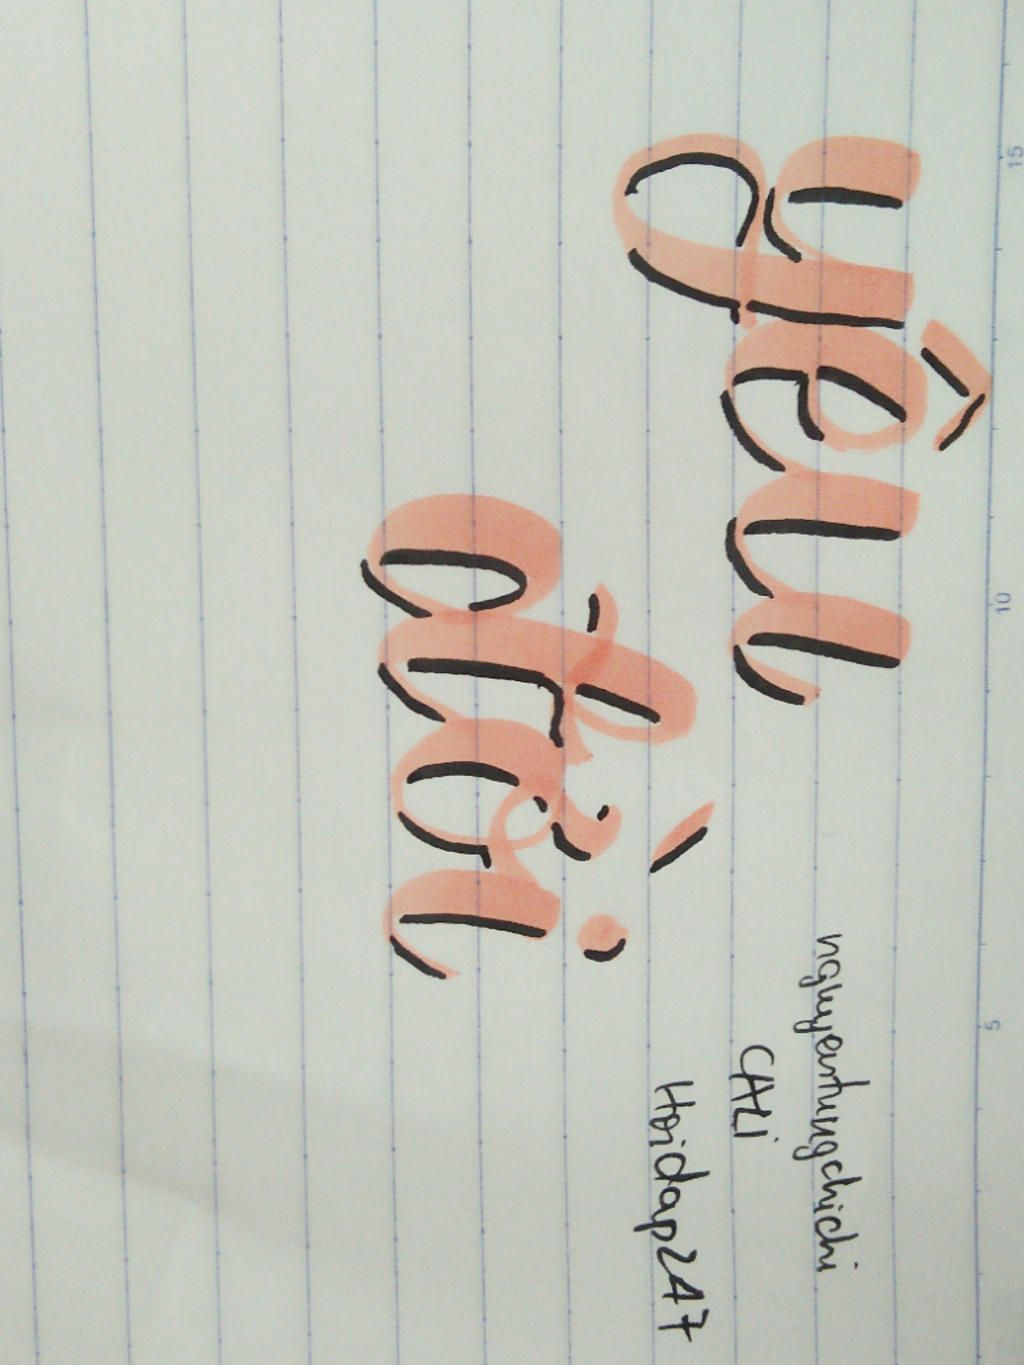 yêu
đời
nguyentungchichi
CALi
Hoidap247
15
10
5